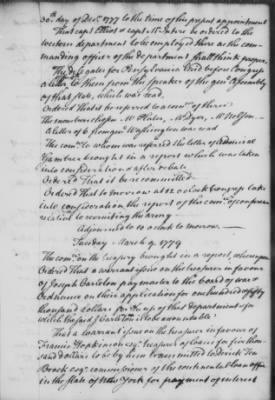 30th day of Decr. 1777 to the time of his present appointment
That capt Ethis & capt McIntire be ordered to the
western department to be employed there as the com-
manding officer of the department shall think proper.
The delegates for Pensylvania laid before Congress
a letter to them from the speaker of the genl Assembly
of that state, which was read,
Ordered That it be referred to a comee of three
The members chosen Mr Mr Dyer, Mr Nelson
A letter of 8 from genl Washington was read
The comee to whom was referred the letter of Admiral
Gambier brought in a report which was taken
into consideration & after debate
Ordered That it be recommitted.
Ordered That tomorrow at 12 o'clock Congress take
into consideration the report of the comee of conference
relative to recruiting the army
Adjourned to 10 o clock to morrow.
Tuesday March 9. 1779
The comee on the treasury brought in a report, whereupon
Ordered That a warrant issue on the treasurer in favour
of Joseph Carleton pay master to the board of war &
Ordnance on their application for one hundred & fifty
thousand dollars for the use of that department & for
which the said J Carleton is to be accountable:
That a warrant issue on the treasurer in favour of
Francis Hopkinson esqr treasurer of loans for five thou-
sand dollars to be by him transmitted to derick Ten
Broeck esqr commissioner of the continental loan office
in the state of New York for payment of interest